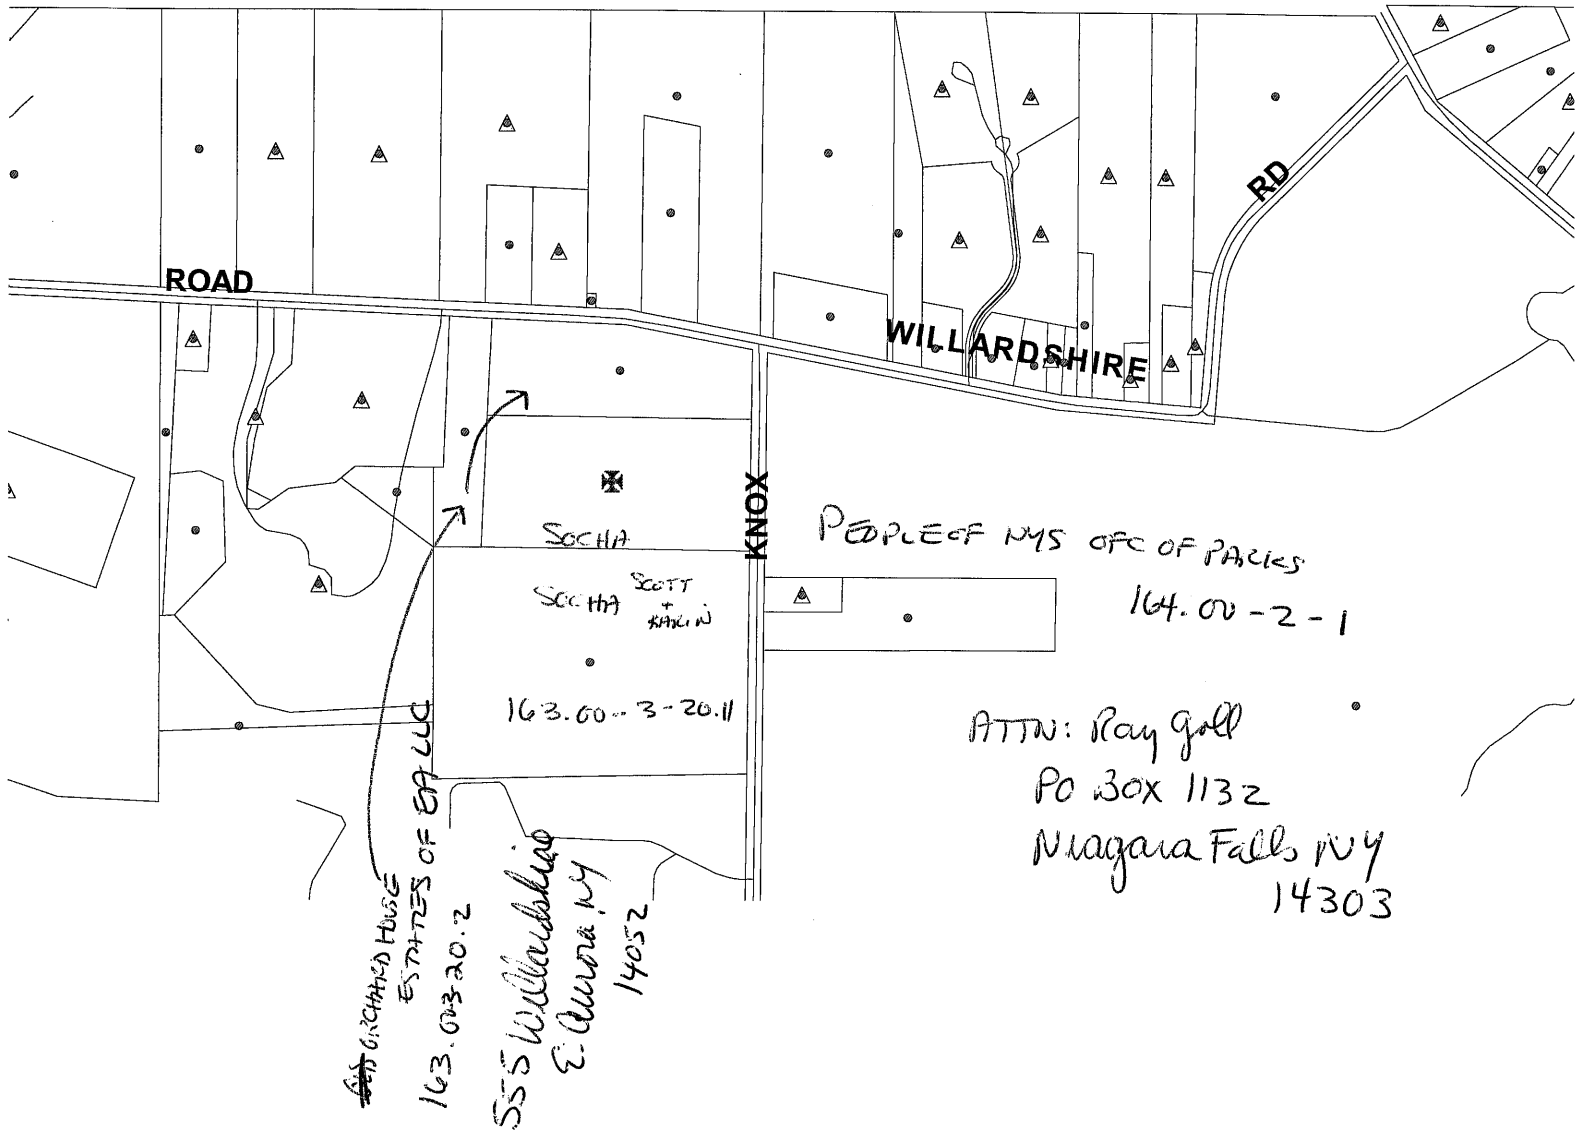 ROAD
RD
WILLARDSHIRE
KNOX
SOCHA
SOCHA SCOTT
+
KARIN
163.00-3-20.11
PEOPLE OF NYS OFC OF PARKS
164.00-2-1
ATTN: Ray Goll
PO BOX 1132
Niagara Falls NY
14303
ORCHARD HOUSE
ESTATES OF EA LLC
163.003-20.2
555 Willardshire
E. Aurora, NY
14052